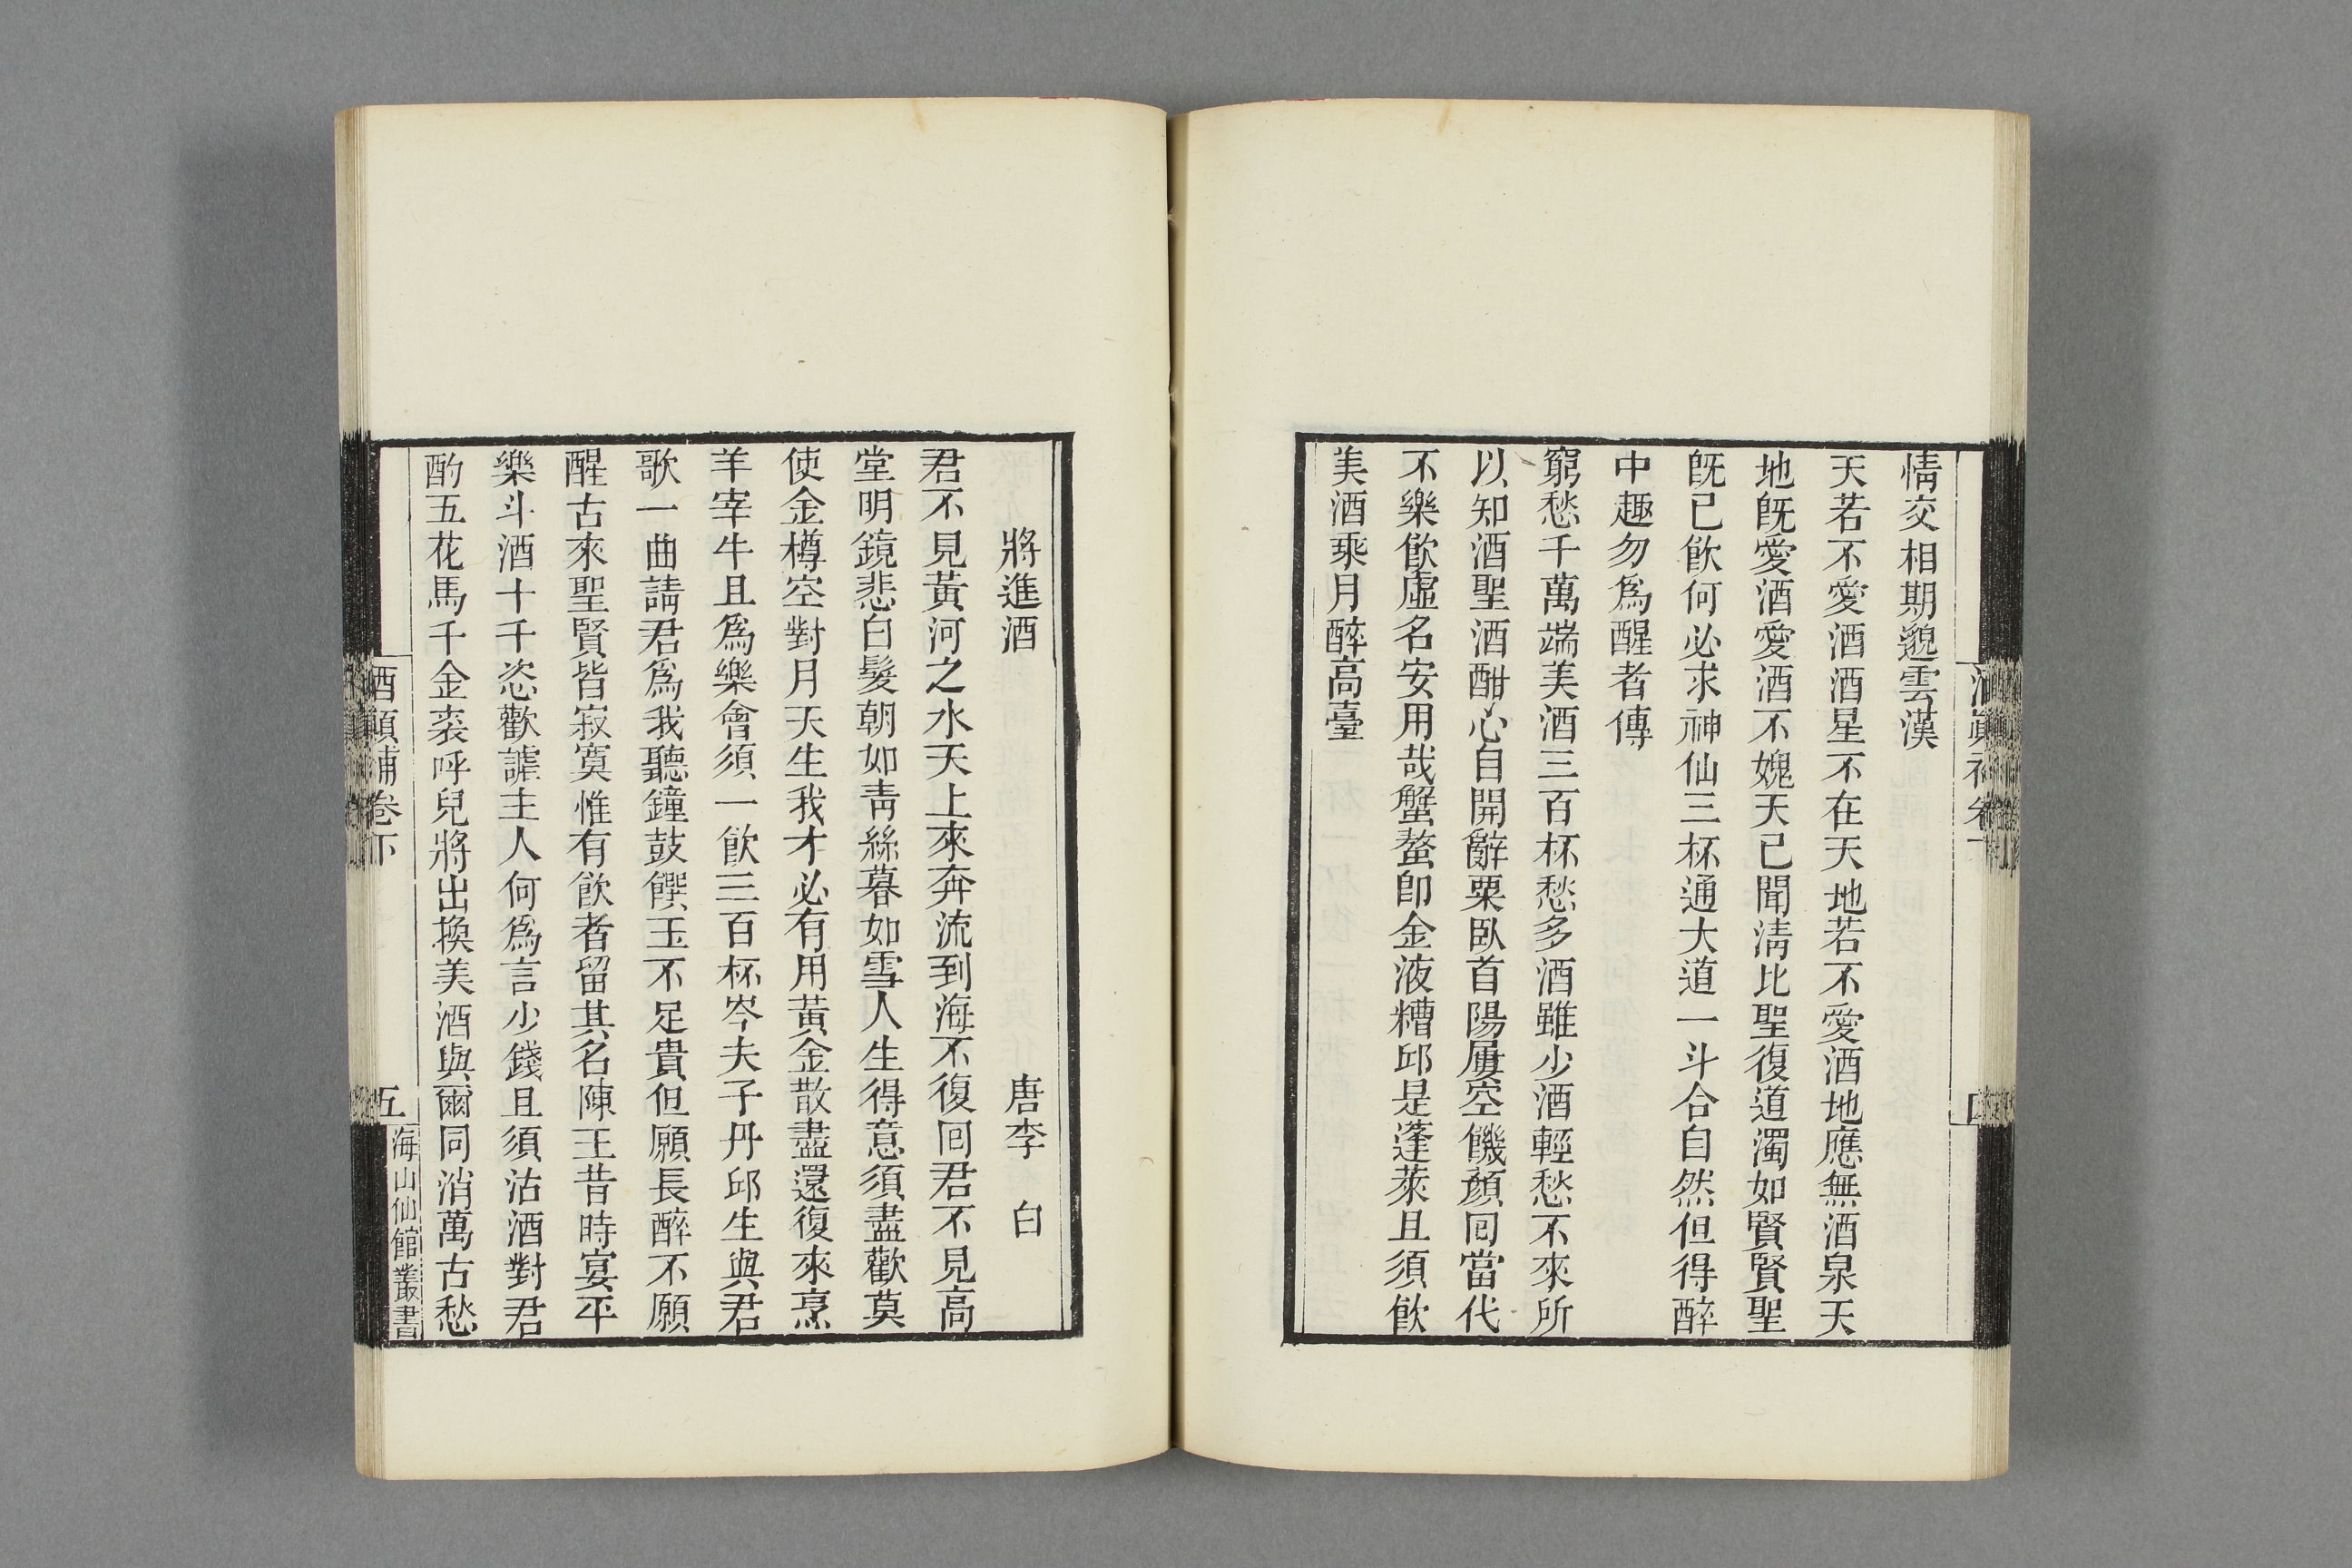 情交相期邈雲漢
天若不愛酒酒星不在天地若不愛酒地應無酒泉天
地旣愛酒愛酒不媿天已聞淸比聖復道濁如賢賢聖
旣已飮何必求神仙三杯通大道一斗合自然但得醉
中趣勿爲醒者傳
窮愁千萬端美酒三百杯愁多酒雖少酒輕愁不來所
以知酒聖酒酣心自開辭粟臥首陽屢空饑顏回當代
不樂飮虛名安用哉蟹螯卽金液糟邱是蓬萊且須飮
美酒乘月醉高臺
將進酒 唐李 白
君不見黃河之水天上來奔流到海不復回君不見高
堂明鏡悲白髮朝如靑絲暮如雪人生得意須盡歡莫
使金樽空對月天生我才必有用黃金散盡還復來烹
羊宰牛且爲樂會須一飮三百杯岑夫子丹邱生與君
歌一曲請君爲我聽鐘鼓饌玉不足貴但願長醉不願
醒古來聖賢皆寂寞惟有飮者留其名陳王昔時宴平
樂斗酒十千恣歡謔主人何爲言少錢且須沽酒對君
酌五花馬千金裘呼兒將出換美酒與爾同消萬古愁
酒顚補卷下 五 海山仙館叢書